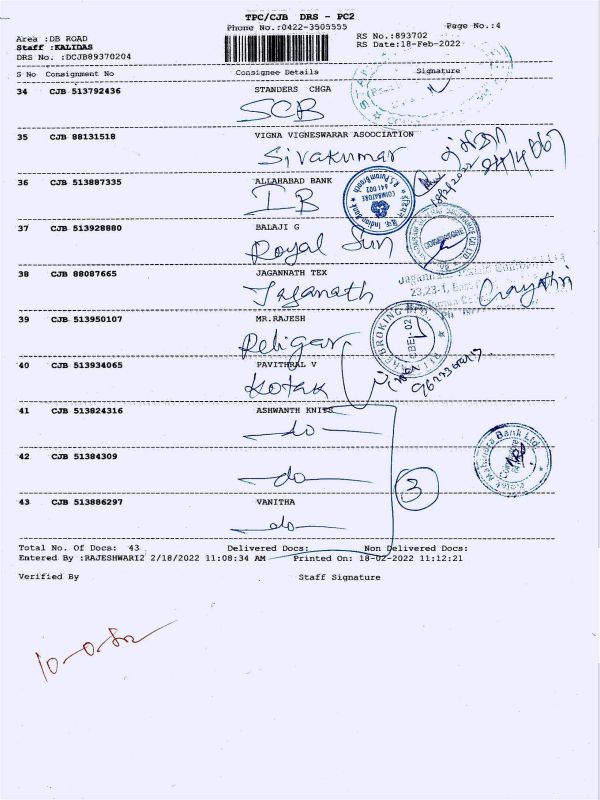 TPC/CJB DRS - PC2
Phone No.:0422-3505555
Page No.:4
Area :DB ROAD
RS No.:893702
Staff :KALIDAS
RS Date:18-Feb-2022
DRS No. :DCJB89370204
S No Consignment No Consignee Details Signature
34 CJB 513792436 STANDERS CHGA
SCB
35 CJB 88131518 VIGNA VIGNESWARAR ASOOCIATION
Sivakumar
36 CJB 513887335 ALLAHABAD BANK
IB
18/2/2022
Indian Bank
COIMBATORE
641 002
R.S.Puram Branch
37 CJB 513928880 BALAJI G
Royal Sun
38 CJB 88087665 JAGANNATH TEX
Jaganath
39 CJB 513950107 MR.RAJESH
Religar
40 CJB 513934065 PAVITHRAL V
Kotak
41 CJB 513824316 ASHWANTH KNITS
do
42 CJB 51384309
do
3
Kotak Mahindra Bank Ltd
43 CJB 513886297 VANITHA
do
Total No. Of Docs: 43 Delivered Docs: Non Delivered Docs:
Entered By :RAJESHWARI2 2/18/2022 11:08:34 AM Printed On: 18-02-2022 11:12:21
Verified By Staff Signature